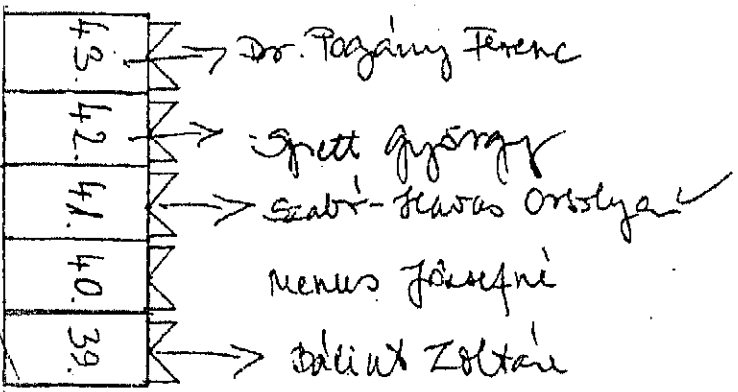 43. Dr. Pogány Ferenc
42. György
41. Szabó-Havas Orsolya
40. Menus Józsefné
39. Bálint Zoltán